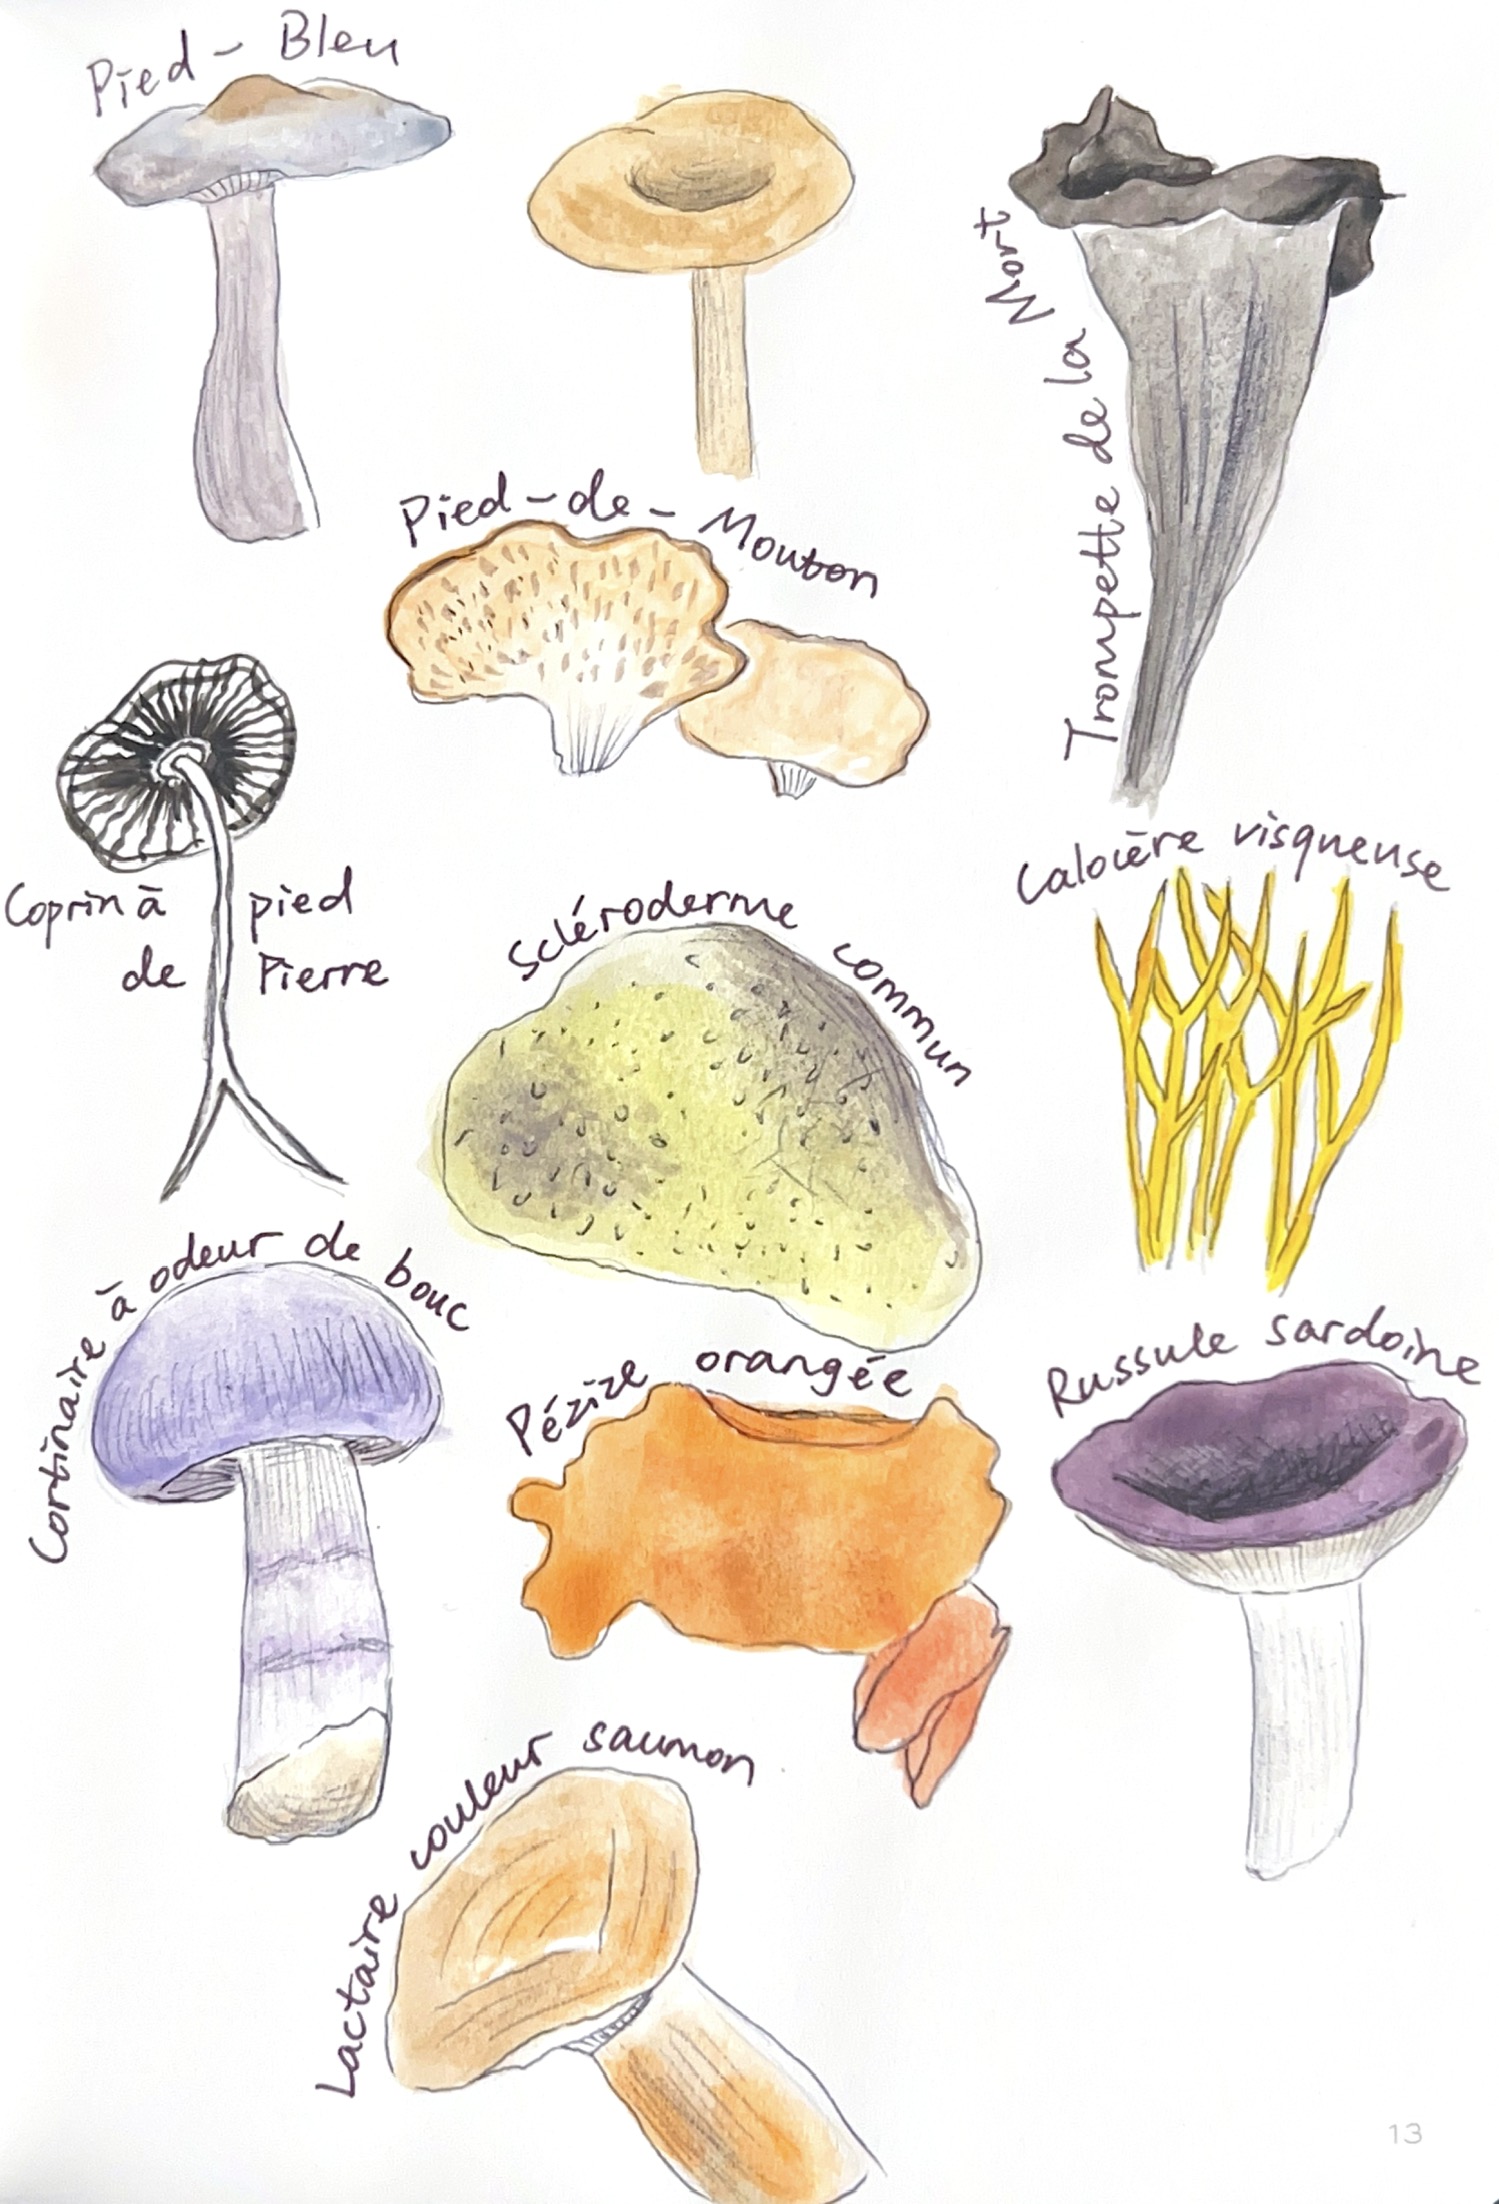 Pied-Bleu
Trompette de la Mort
Pied-de-Mouton
Coprin à pied
de Pierre
Scléroderme commun
Calocère visqueuse
Cortinaire à odeur de bouc
Pézize orangée
Russule sardoine
Lactaire couleur saumon
13